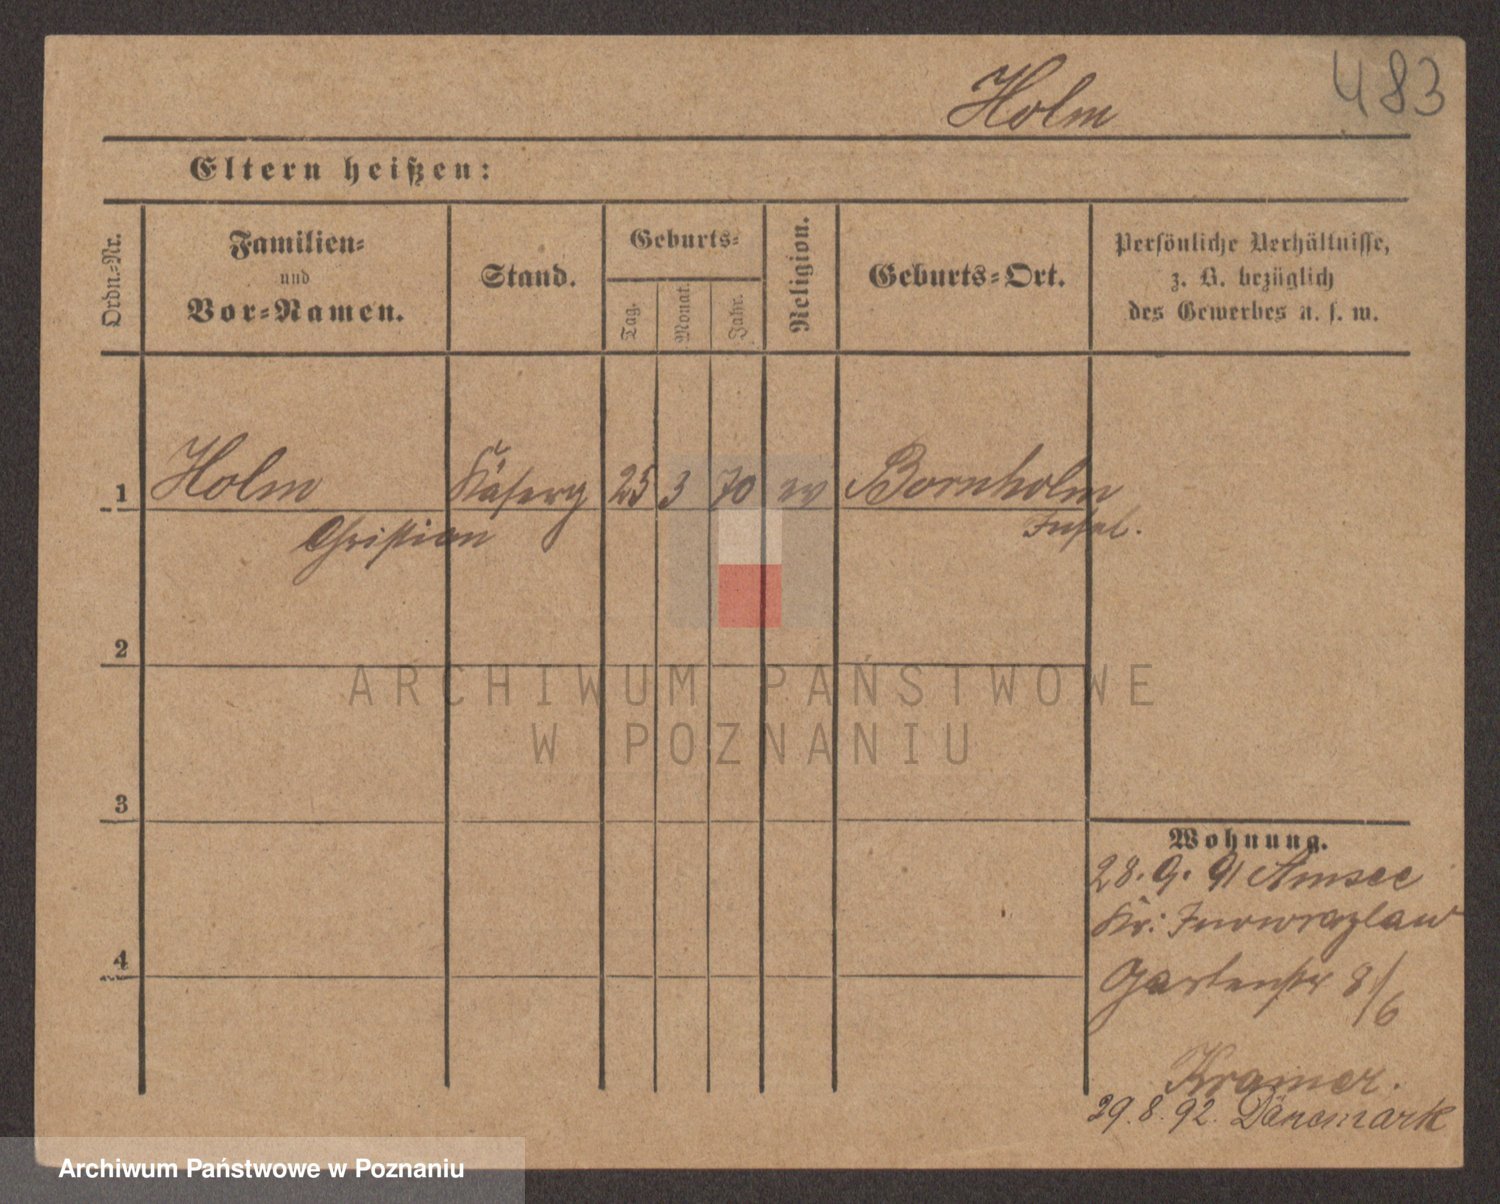 483
Holm
Eltern heißen:
Ordn.-Nr.
Familien-
und
Vor-Namen.
Stand.
Geburts-
Tag.
Monat.
Jahr.
Religion.
Geburts-Ort.
Persönliche Verhältnisse,
z. B. bezüglich
des Gewerbes u. s. w.
1 Holm Käserg 25 3 70 ev Bornholm
Christian Insel.
2
3
4
Wohnung.
28. 9. 91 Amsee
Kr: Inowrazlaw
Gartenstr 8/6
Kramer.
29. 8. 92. Dänemark
ARCHIWUM PAŃSTWOWE
W POZNANIU
Archiwum Państwowe w Poznaniu